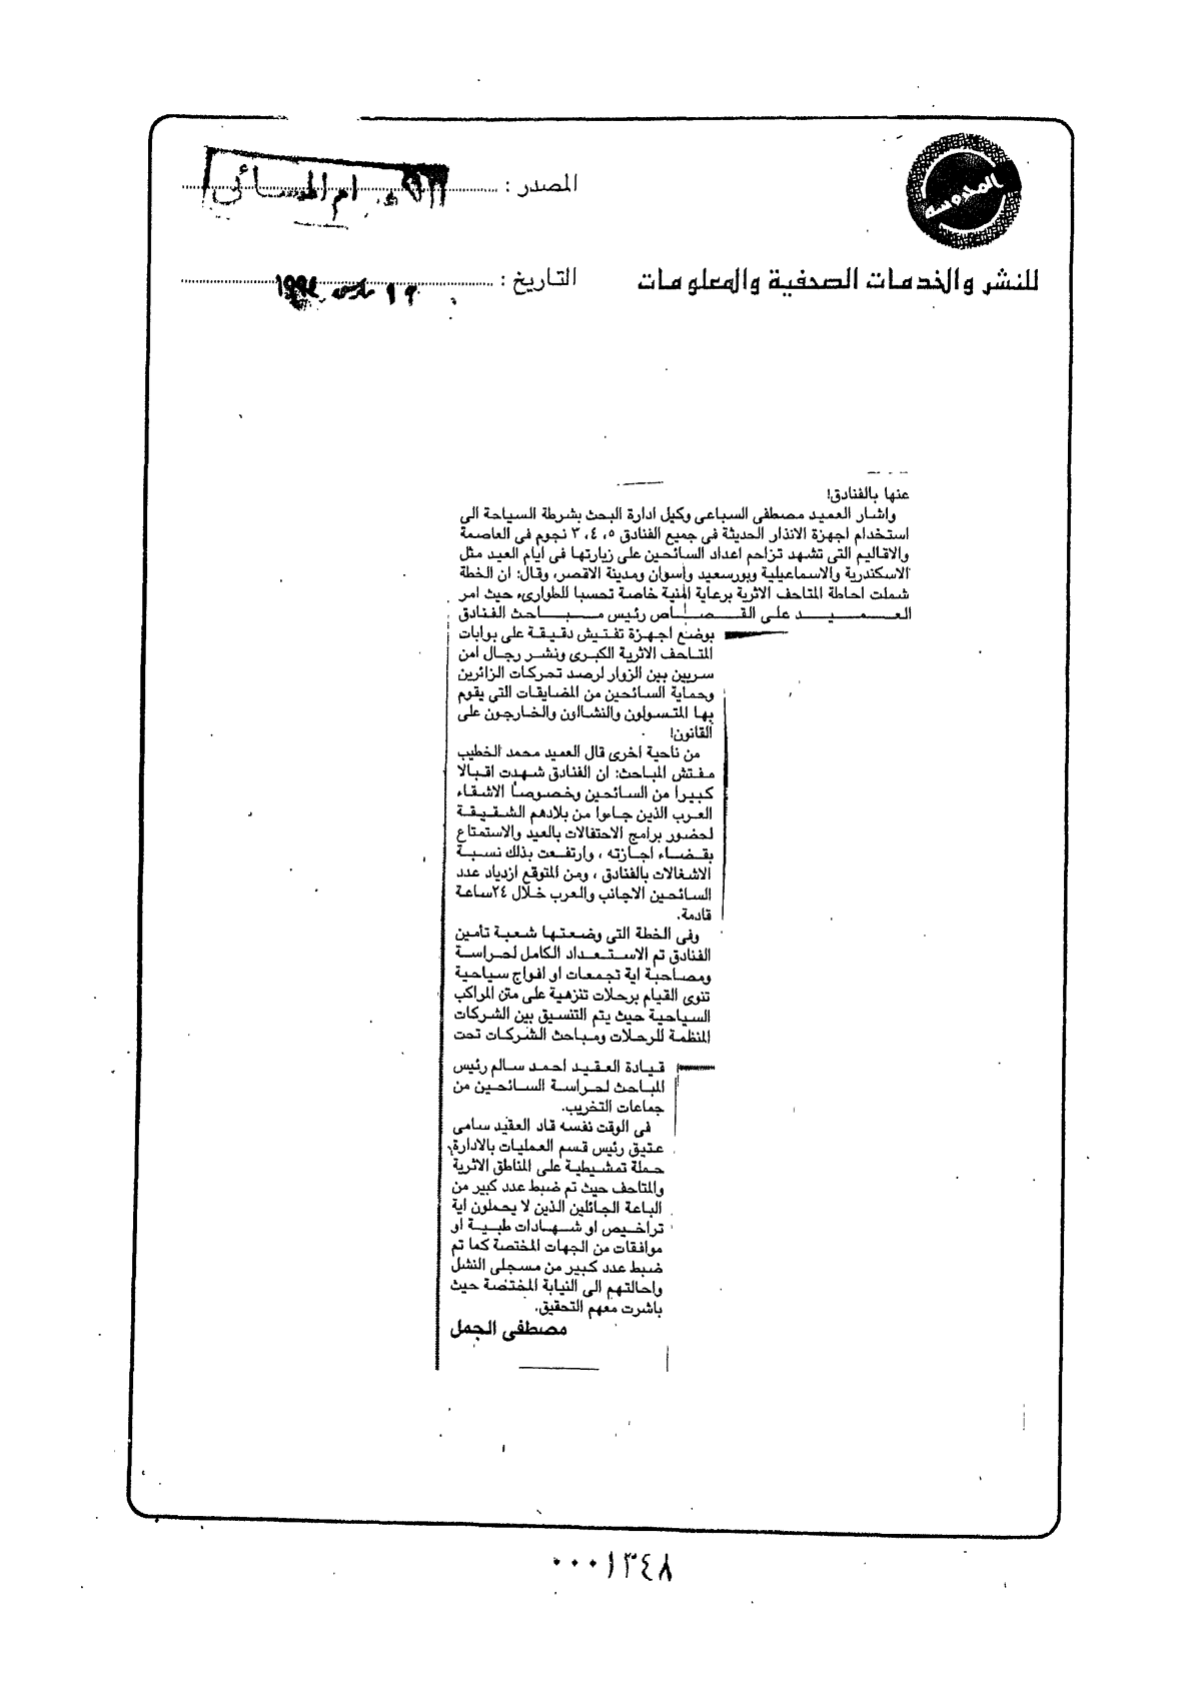 المدوسه
المصدر :
ام المسائى
للنشر والخدمات الصحفية والمعلومات
التاريخ :
مارس ١٩٩٤
عنها بالفنادق!
واشار العميد مصطفى السباعى وكيل ادارة البحث بشرطة السياحة الى
استخدام اجهزة الانذار الحديثة فى جميع الفنادق ٥، ٤، ٣ نجوم فى العاصمة
والاقاليم التى تشهد تزاحم اعداد السائحين على زيارتها فى ايام العيد مثل
الاسكندرية والاسماعيلية وبورسعيد وأسوان ومدينة الاقصر، وقال: ان الخطة
شملت احاطة المتاحف الاثرية برعاية امنية خاصة تحسبا للطوارىء حيث امر
العميد على القصاص رئيس مباحث الفنادق
بوضع اجهزة تفتيش دقيقة على بوابات
المتاحف الاثرية الكبرى ونشر رجال امن
سريين بين الزوار لرصد تحركات الزائرين
وحماية السائحين من المضايقات التى يقوم
بها المتسولون والنشالون والخارجون على
القانون!
من ناحية اخرى قال العميد محمد الخطيب
مفتش المباحث: ان الفنادق شهدت اقبالا
كبيرا من السائحين وخصوصا الاشقاء
العرب الذين جاءوا من بلادهم الشقيقة
لحضور برامج الاحتفالات بالعيد والاستمتاع
بقضاء اجازته ، وارتفعت بذلك نسبة
الاشغالات بالفنادق ، ومن المتوقع ازدياد عدد
السائحين الاجانب والعرب خلال ٢٤ساعة
قادمة.
وفى الخطة التى وضعتها شعبة تأمين
الفنادق تم الاستعداد الكامل لحراسة
ومصاحبة اية تجمعات او افواج سياحية
تنوى القيام برحلات تنزهية على متن المراكب
السياحية حيث يتم التنسيق بين الشركات
المنظمة للرحلات ومباحث الشركات تحت
قيادة العقيد احمد سالم رئيس
المباحث لحراسة السائحين من
جماعات التخريب.
فى الوقت نفسه قاد العقيد سامى
عتيق رئيس قسم العمليات بالادارة
حملة تمشيطية على المناطق الاثرية
والمتاحف حيث تم ضبط عدد كبير من
الباعة الجائلين الذين لا يحملون اية
تراخيص او شهادات طبية او
موافقات من الجهات المختصة كما تم
ضبط عدد كبير من مسجلى النشل
واحالتهم الى النيابة المختصة حيث
باشرت معهم التحقيق.
مصطفى الجمل
٠٠٠١٣٤٨